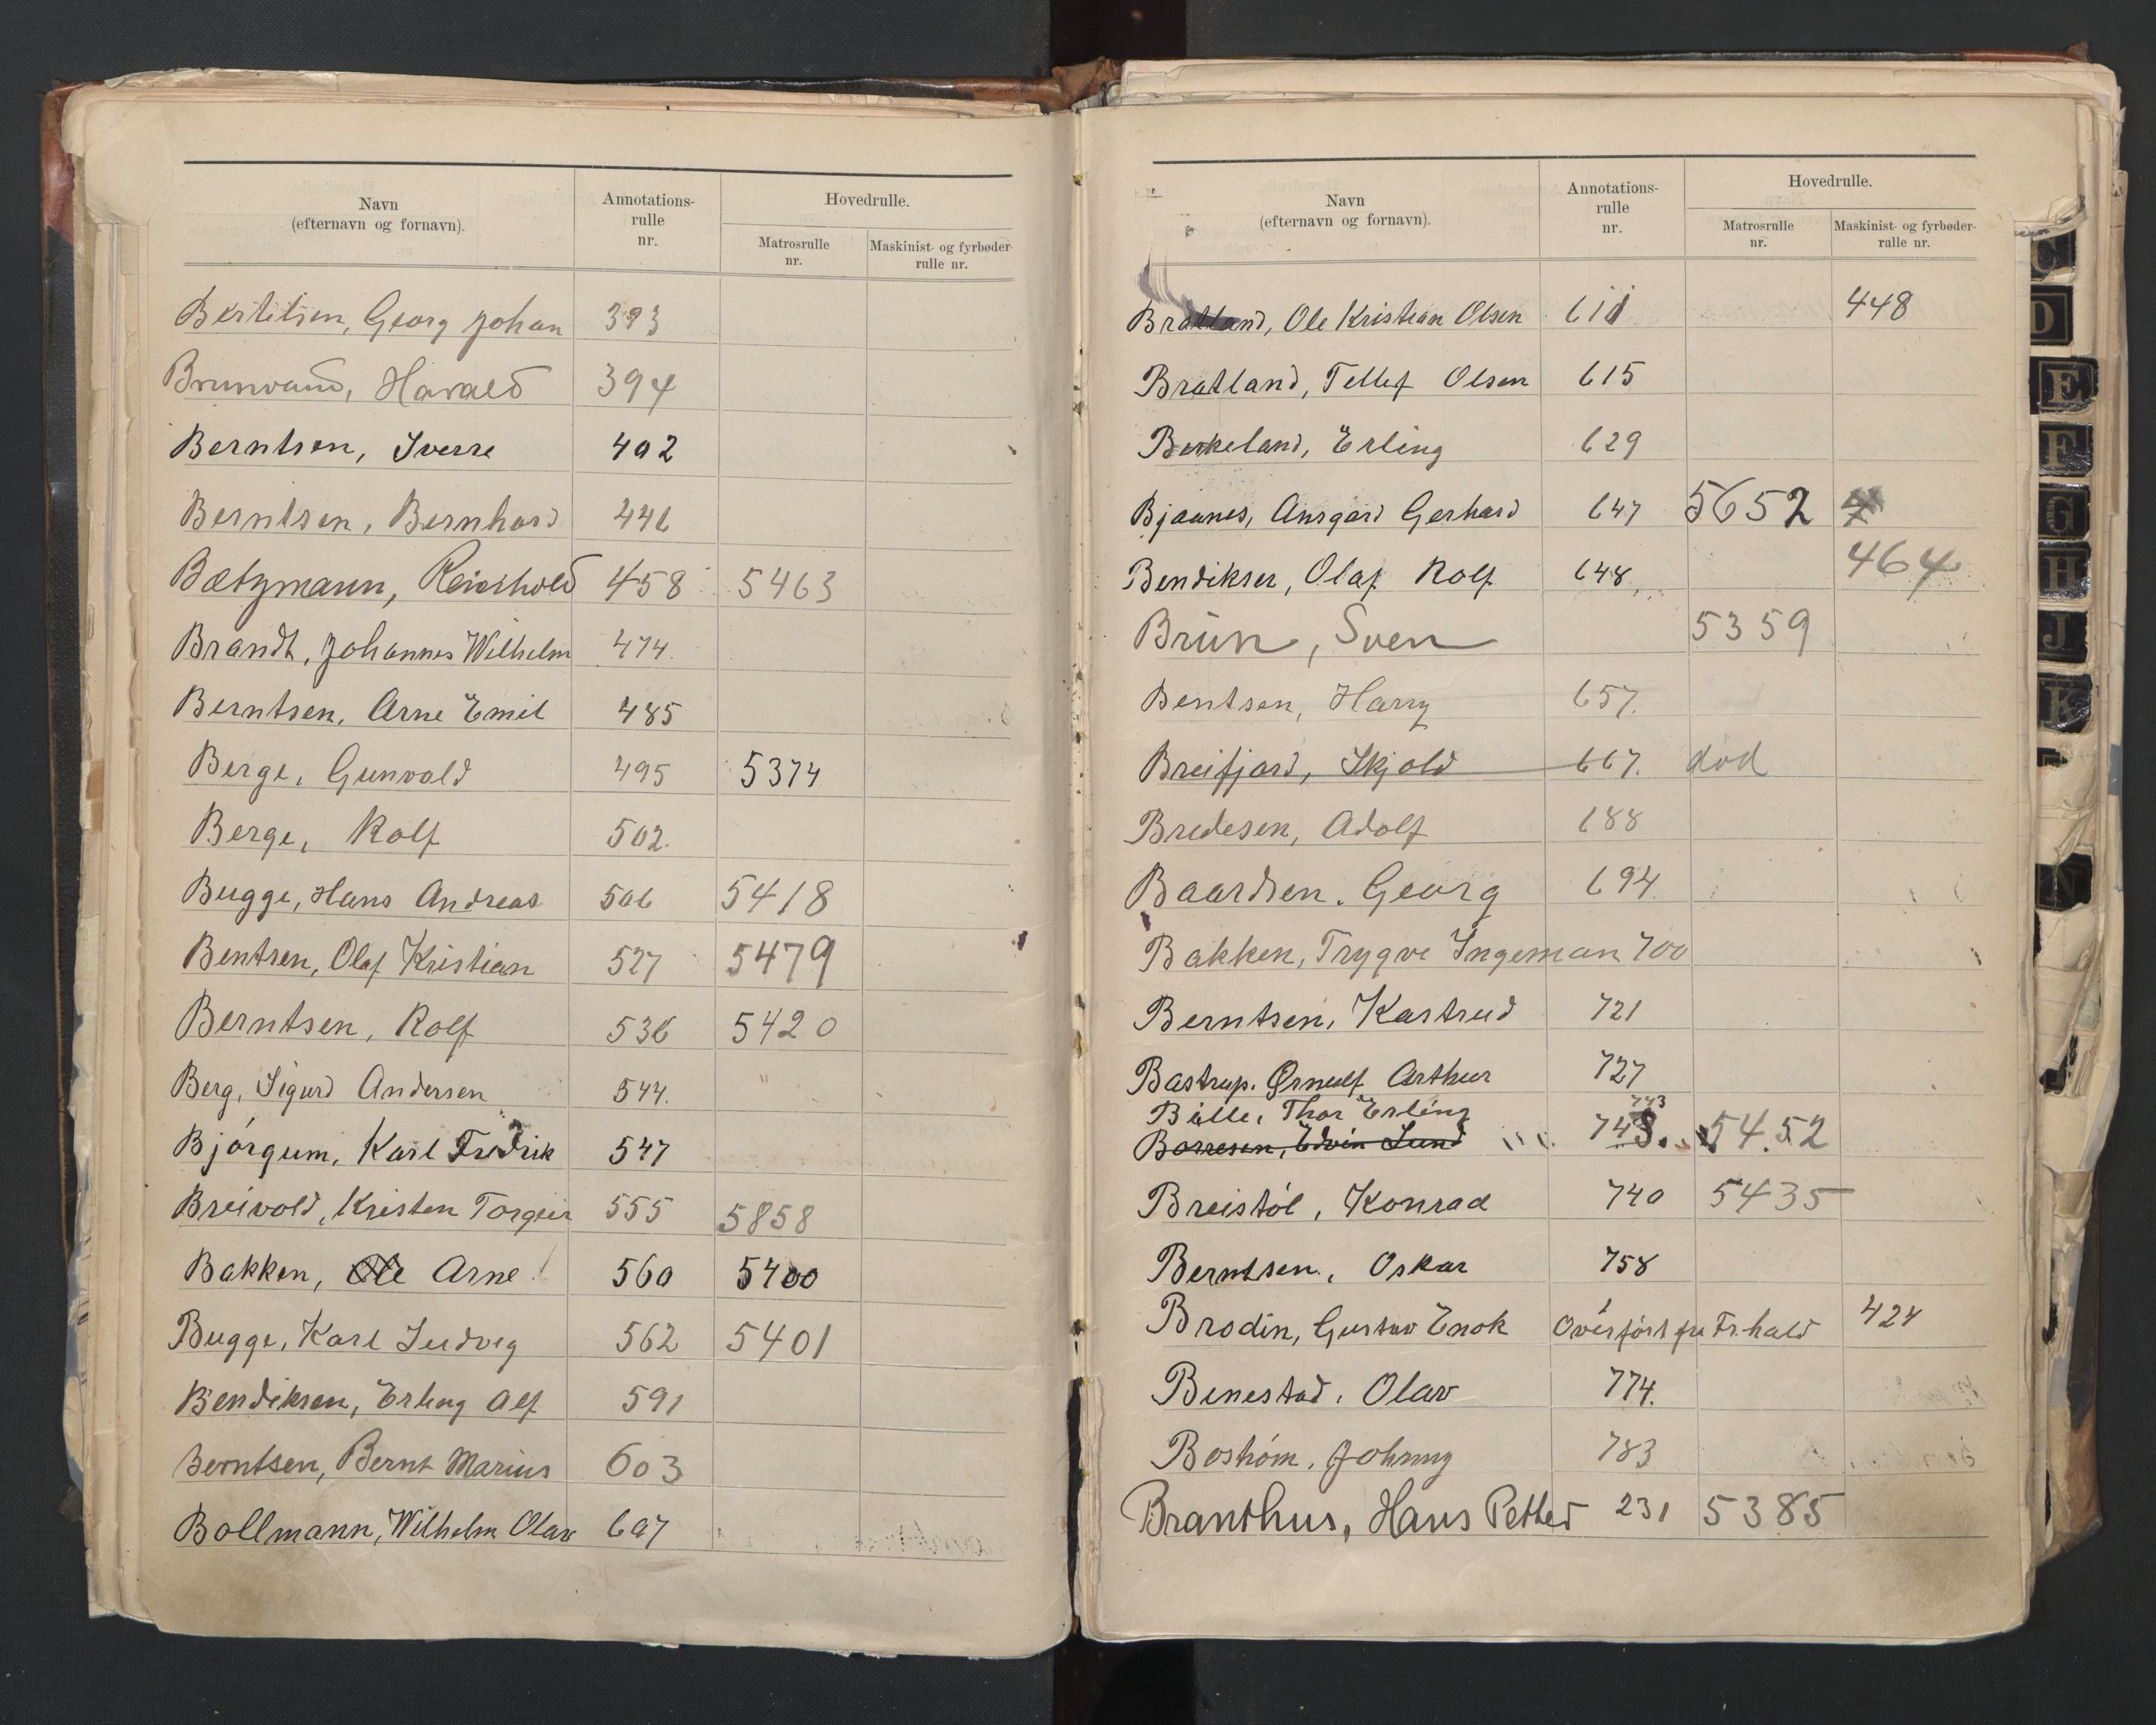 Navn
(efternavn og fornavn).
Annotations-
rulle
nr.
Hovedrulle.
Matrosrulle
nr.
Maskinist- og fyrbøder-
rulle nr.
Bertilsen, Georg Johan 393
Brunvand, Harald 394
Berntsen, Sverre 402
Berntsen, Bernhard 446
Bætzmann, Reinhold 458 5463
Brandt, Johannes Wilhelm 474
Berntsen, Arne Emil 485
Berge, Gunvald 495 5374
Berge, Rolf 502.
Bugge, Hans Andreas 506 5418
Bentsen, Olaf Kristian 527 5479
Berntsen, Rolf 536 5420
Berg, Sigurd Andersen 544.
Bjórgum, Karl Fredrik 547
Breivold, Kristen Torgeir 555 5858
Bakken, Ole Arne 560 5400
Bugge, Karl Ludvig 562 5401
Bendiksen, Erling Alf 591
Berntsen, Bernt Marius 603
Bollmann, Wilhelm Olav 607
Navn
(efternavn og fornavn).
Annotations-
rulle
nr.
Hovedrulle.
Matrosrulle
nr.
Maskinist- og fyrbøder-
rulle nr.
Bratland, Ole Kristian Olsen 611 448
Bratland, Tellef Olsen 615
Berkeland, Erling 629
Bjaanes, Ansgard Gerhard 647 5652
Bendikser, Olaf Rolf 648 464
Brün, Sven 5359
Bentsen, Harry 657.
Breifjord, Skjold 667. død
Bredesen, Adolf 688
Baardsen. Georg 694
Bakken, Trygve Ingeman 700
Berntsen, Kastrud 721
Bastrup. Ørnulf Arthur 727
Bille, Thor Erling 743
Borresen, Edvin Lund 743. 5452
Breistól, Konrad 740 5435
Berntsen, Oskar 758
Brodin, Gustav Enok Overfórt fra Fr.hald 424
Benestad, Olav 774.
Bostróm, Johnny 783
Branthus, Hans Petter 231 5385
C
D
E
F
G
H
J
K
N